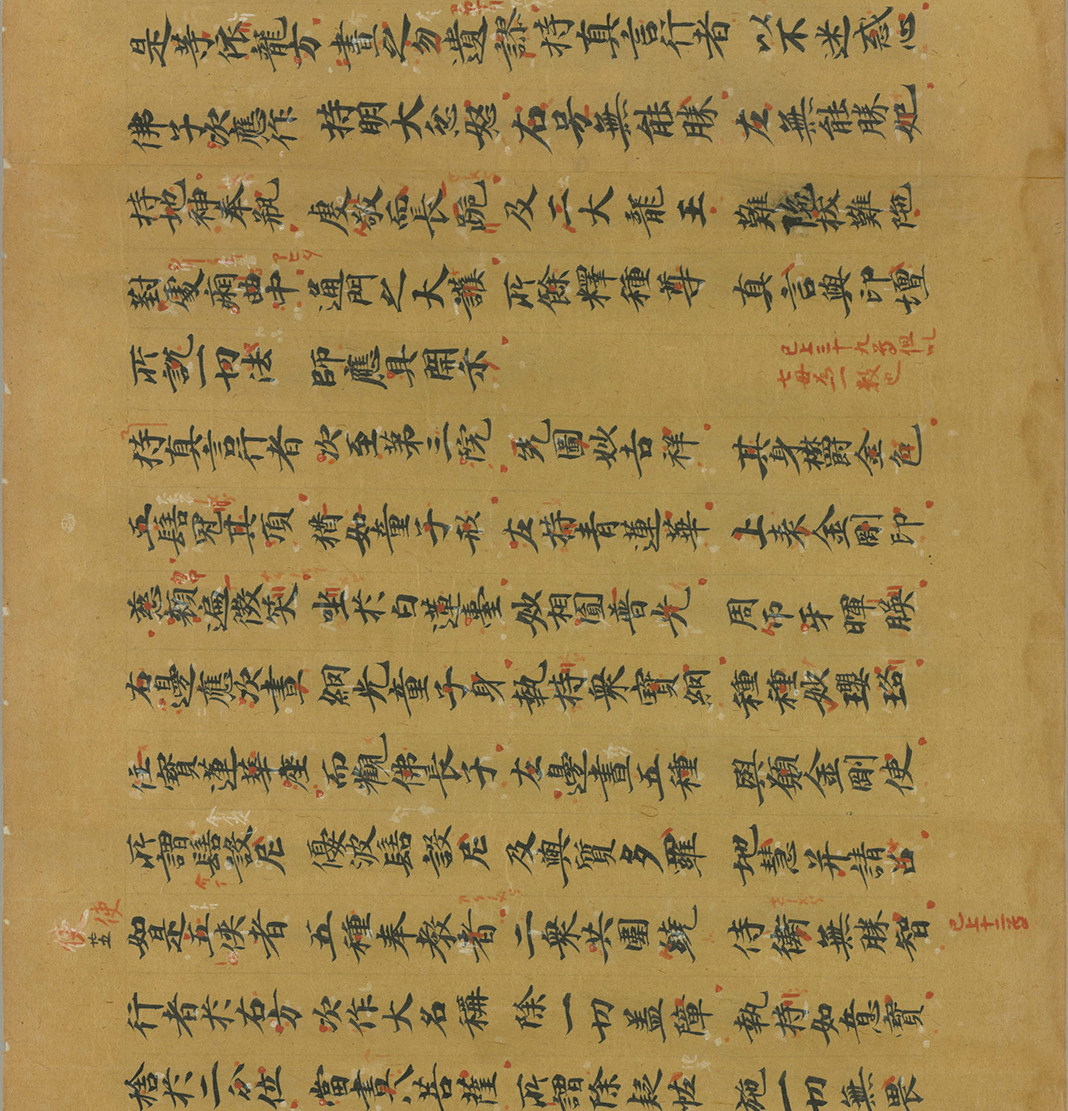 是等依龍方 畫之勿遺謬 持真言行者 以不迷惑心
佛子次應作 持明大忿怒 右号無能勝 左無能勝妃
持地神奉瓶 虔敬而長跪 及二大龍王 難陁拔難陁
對處廂曲中 通門之大護 所餘釋種尊 真言與印壇
所說一切法 師應具開示 已上三十九尊但以
七母為一數也
持真言行者 次至第三院 先圖妙吉祥 其身欝金色
五髻冠其頂 猶如童子形 左持青蓮華 上表金剛印
慈顏遍微笑 坐於白蓮臺 妙相圓普光 周帀牙暉暎
右邊應次畫 網光童子身 執持衆寶網 種種妙瓔珞
住寶蓮華座 而觀佛長子 左邊畫五種 與願金剛使
所謂髻設尼 優波髻設尼 及與質多羅 地慧并請召
使 如是五使者 五種奉教者 二衆共圍繞 侍衛無勝智 已上十二尊
行者於右方 次作大名稱 除一切盖障 執持如意寶
捨於二分位 當畫八菩薩 所謂除疑怪 施一切無畏